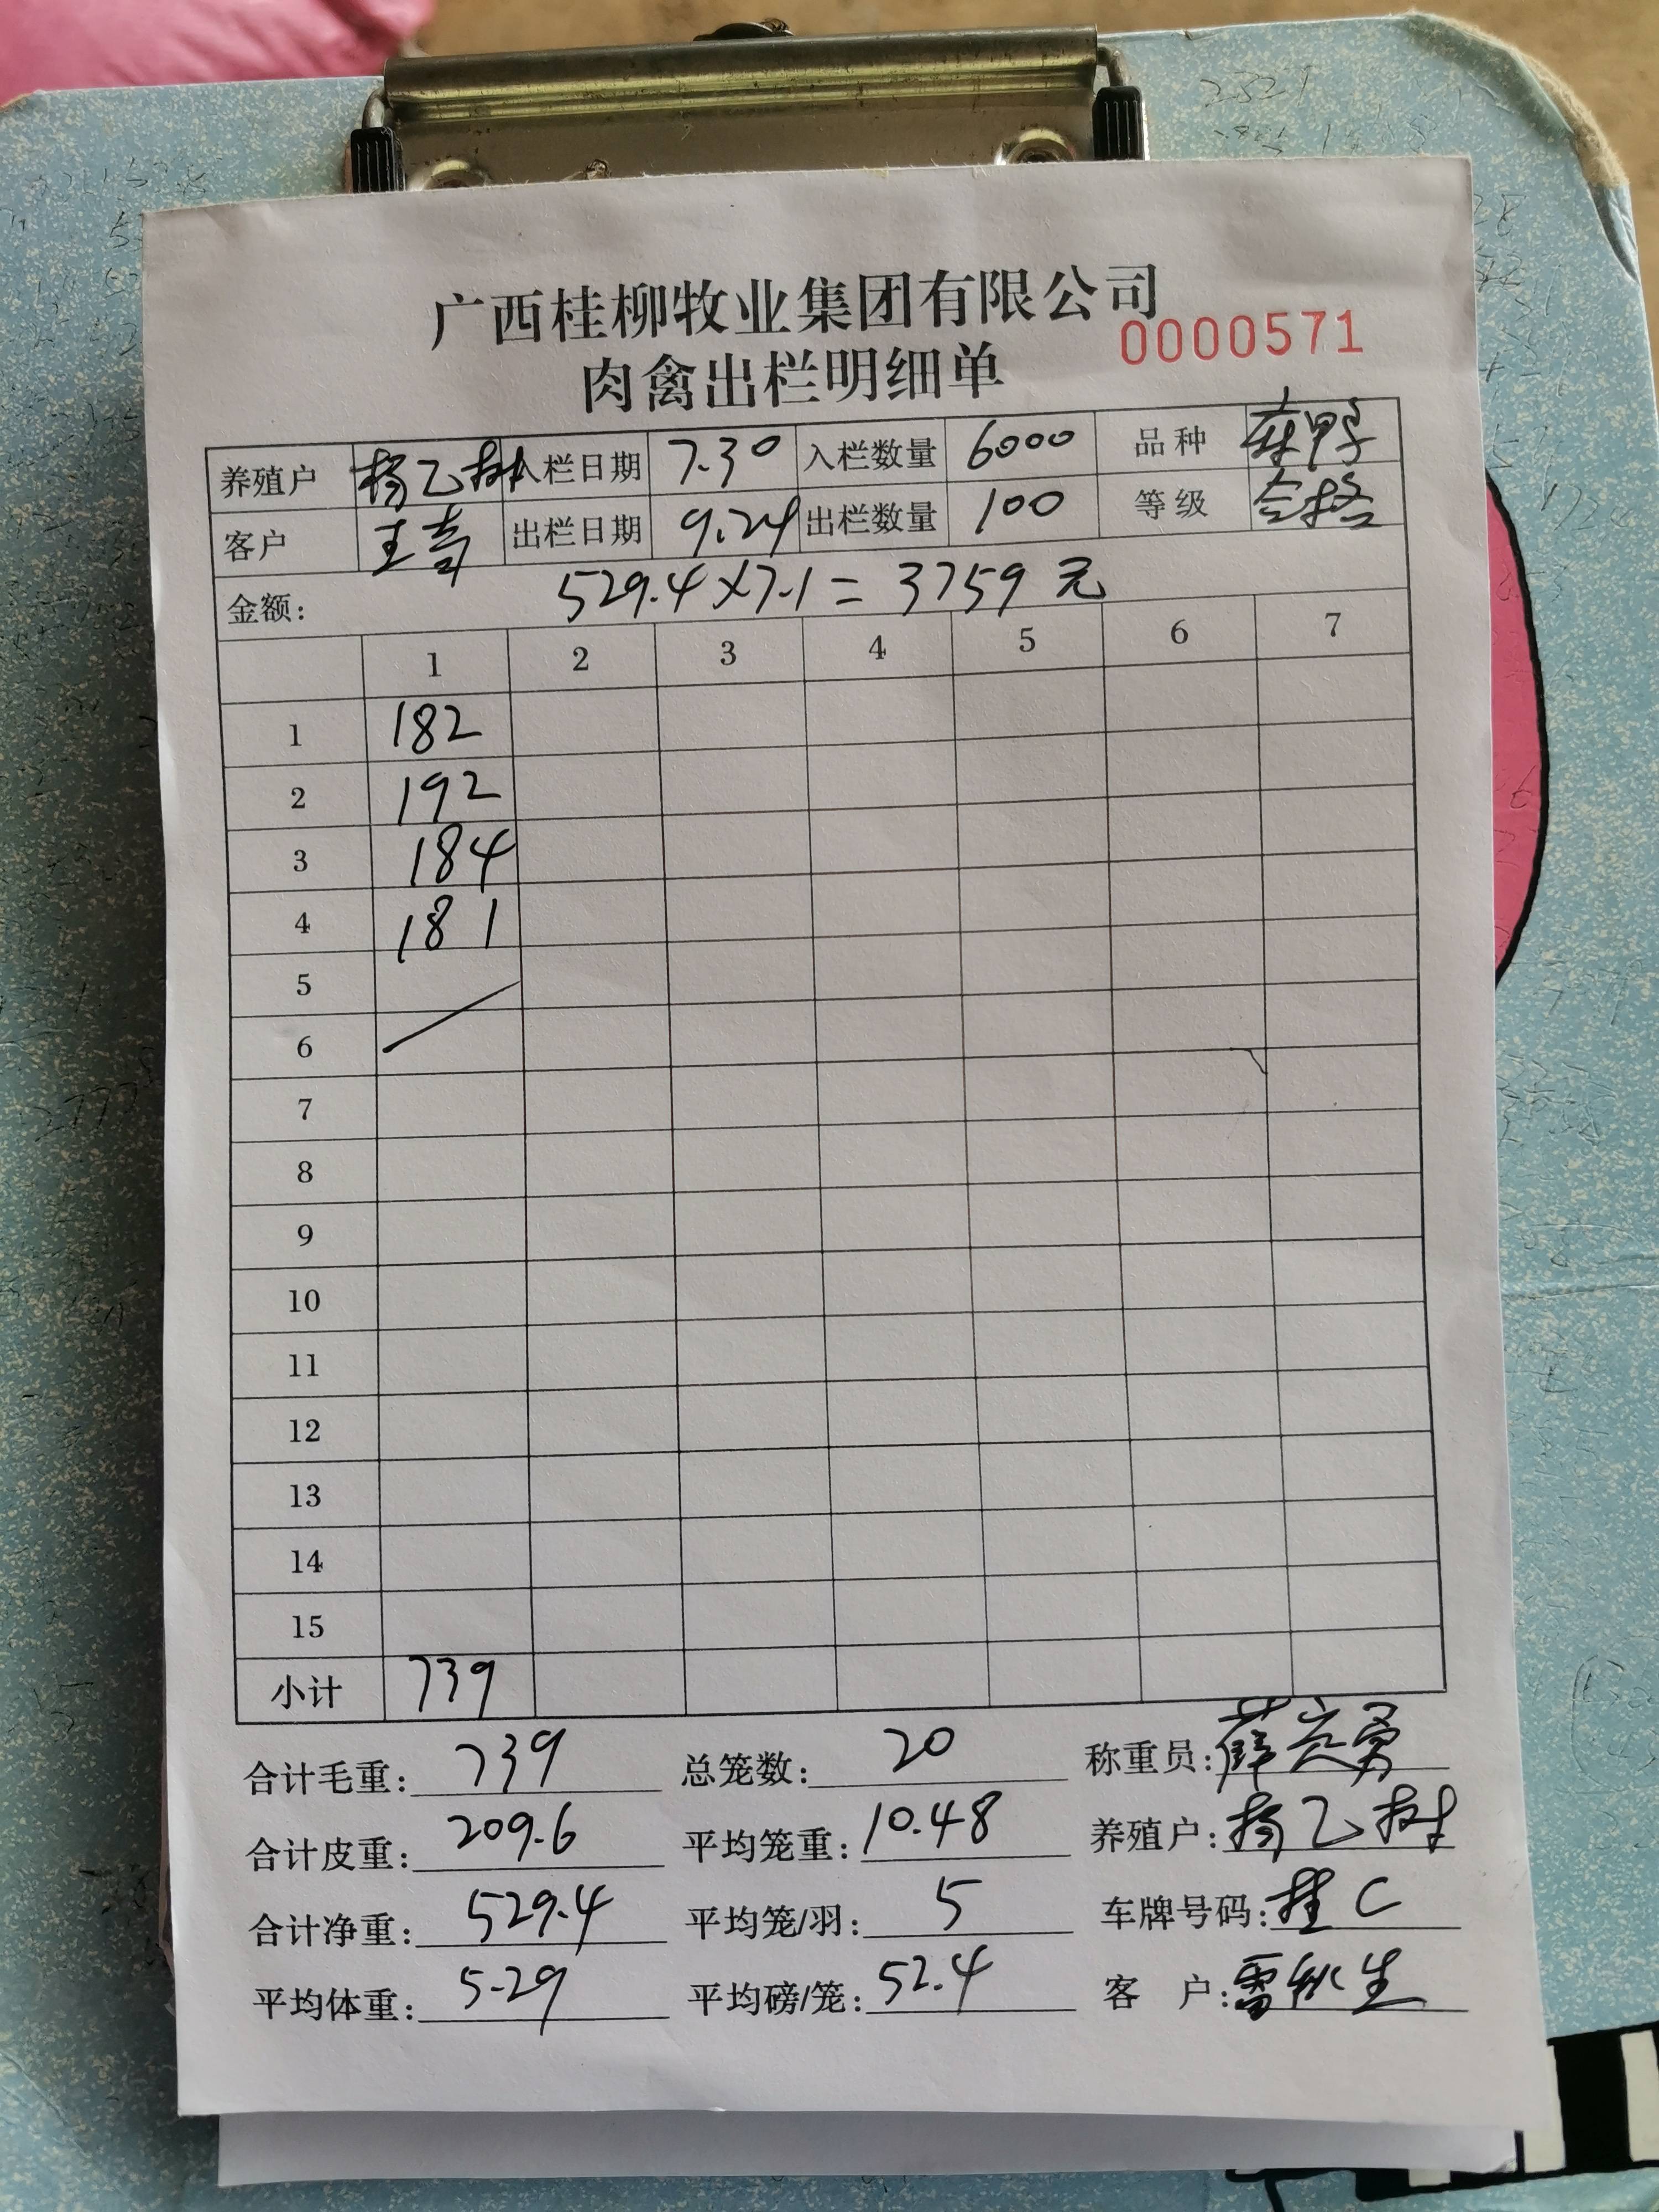 广西桂柳牧业集团有限公司
0000571
肉禽出栏明细单
养殖户 杨乙树 入栏日期 7.30 入栏数量 6000 品种 麻鸭
客户 出栏日期 9.24 出栏数量 100 等级 合格
金额: 529.4×7.1=3759元
1 2 3 4 5 6 7
1 182
2 192
3 184
4 181
5
6
7
8
9
10
11
12
13
14
15
小计 739
合计毛重: 739 总笼数: 20 称重员:
合计皮重: 209.6 平均笼重: 10.48 养殖户: 杨乙树
合计净重: 529.4 平均笼/羽: 5 车牌号码: 桂C
平均体重: 5.29 平均磅/笼: 52.4 客 户: